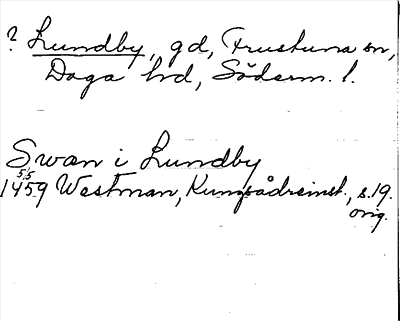 ? Lundby, gd, Frustuna sn,
Daga hd, Söderm. l.
Swan i Lundby
5/5
1459 Westman, Kungsådreinst., s. 19.
orig.